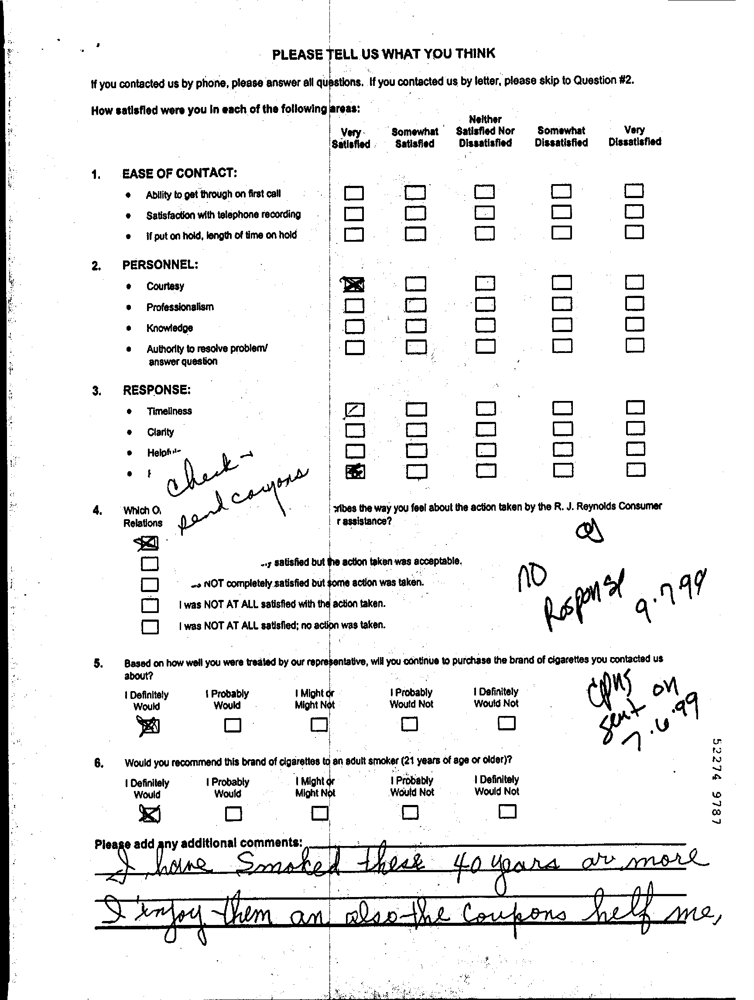 PLEASE TELL US WHAT YOU THINK
If you contacted us by phone, please answer all questions. If you contacted us by letter, please skip to Question #2.
How satisfied were you in each of the following areas:
Very Satisfied Somewhat Satisfied Neither Satisfied Nor Dissatisfied Somewhat Dissatisfied Very Dissatisfied
1. EASE OF CONTACT:
• Ability to get through on first call
• Satisfaction with telephone recording
• If put on hold, length of time on hold
2. PERSONNEL:
• Courtesy
• Professionalism
• Knowledge
• Authority to resolve problem/
answer question
3. RESPONSE:
• Timeliness
• Clarity
• Helpful
check
send coupons
4. Which O ribes the way you feel about the action taken by the R. J. Reynolds Consumer
Relations r assistance?
satisfied but the action taken was acceptable.
NOT completely satisfied but some action was taken.
I was NOT AT ALL satisfied with the action taken.
I was NOT AT ALL satisfied; no action was taken.
no
Response
9.7.99
5. Based on how well you were treated by our representative, will you continue to purchase the brand of cigarettes you contacted us
about?
I Definitely Would I Probably Would I Might or Might Not I Probably Would Not I Definitely Would Not
cpns
sent on
7.6.99
6. Would you recommend this brand of cigarettes to an adult smoker (21 years of age or older)?
I Definitely Would I Probably Would I Might or Might Not I Probably Would Not I Definitely Would Not
52274 9787
Please add any additional comments:
I have Smoked these 40 years ar more
I enjoy them an also the Coupons helf me,